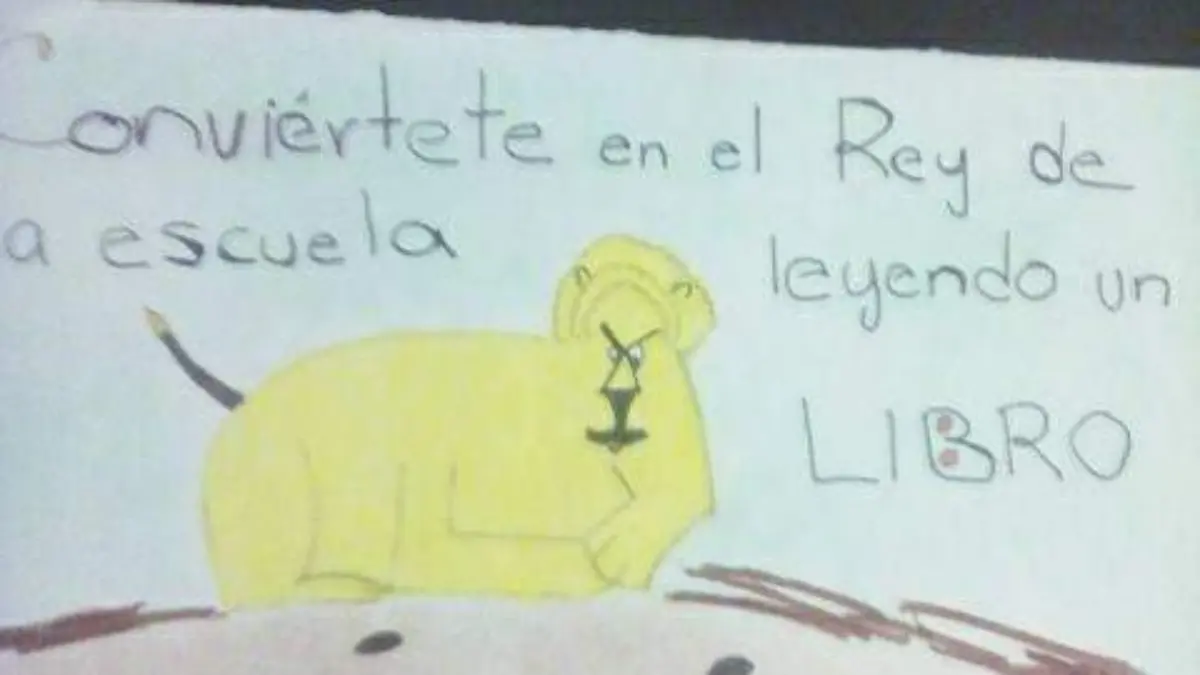 Conviértete en el Rey de
a escuela leyendo un
LIBRO